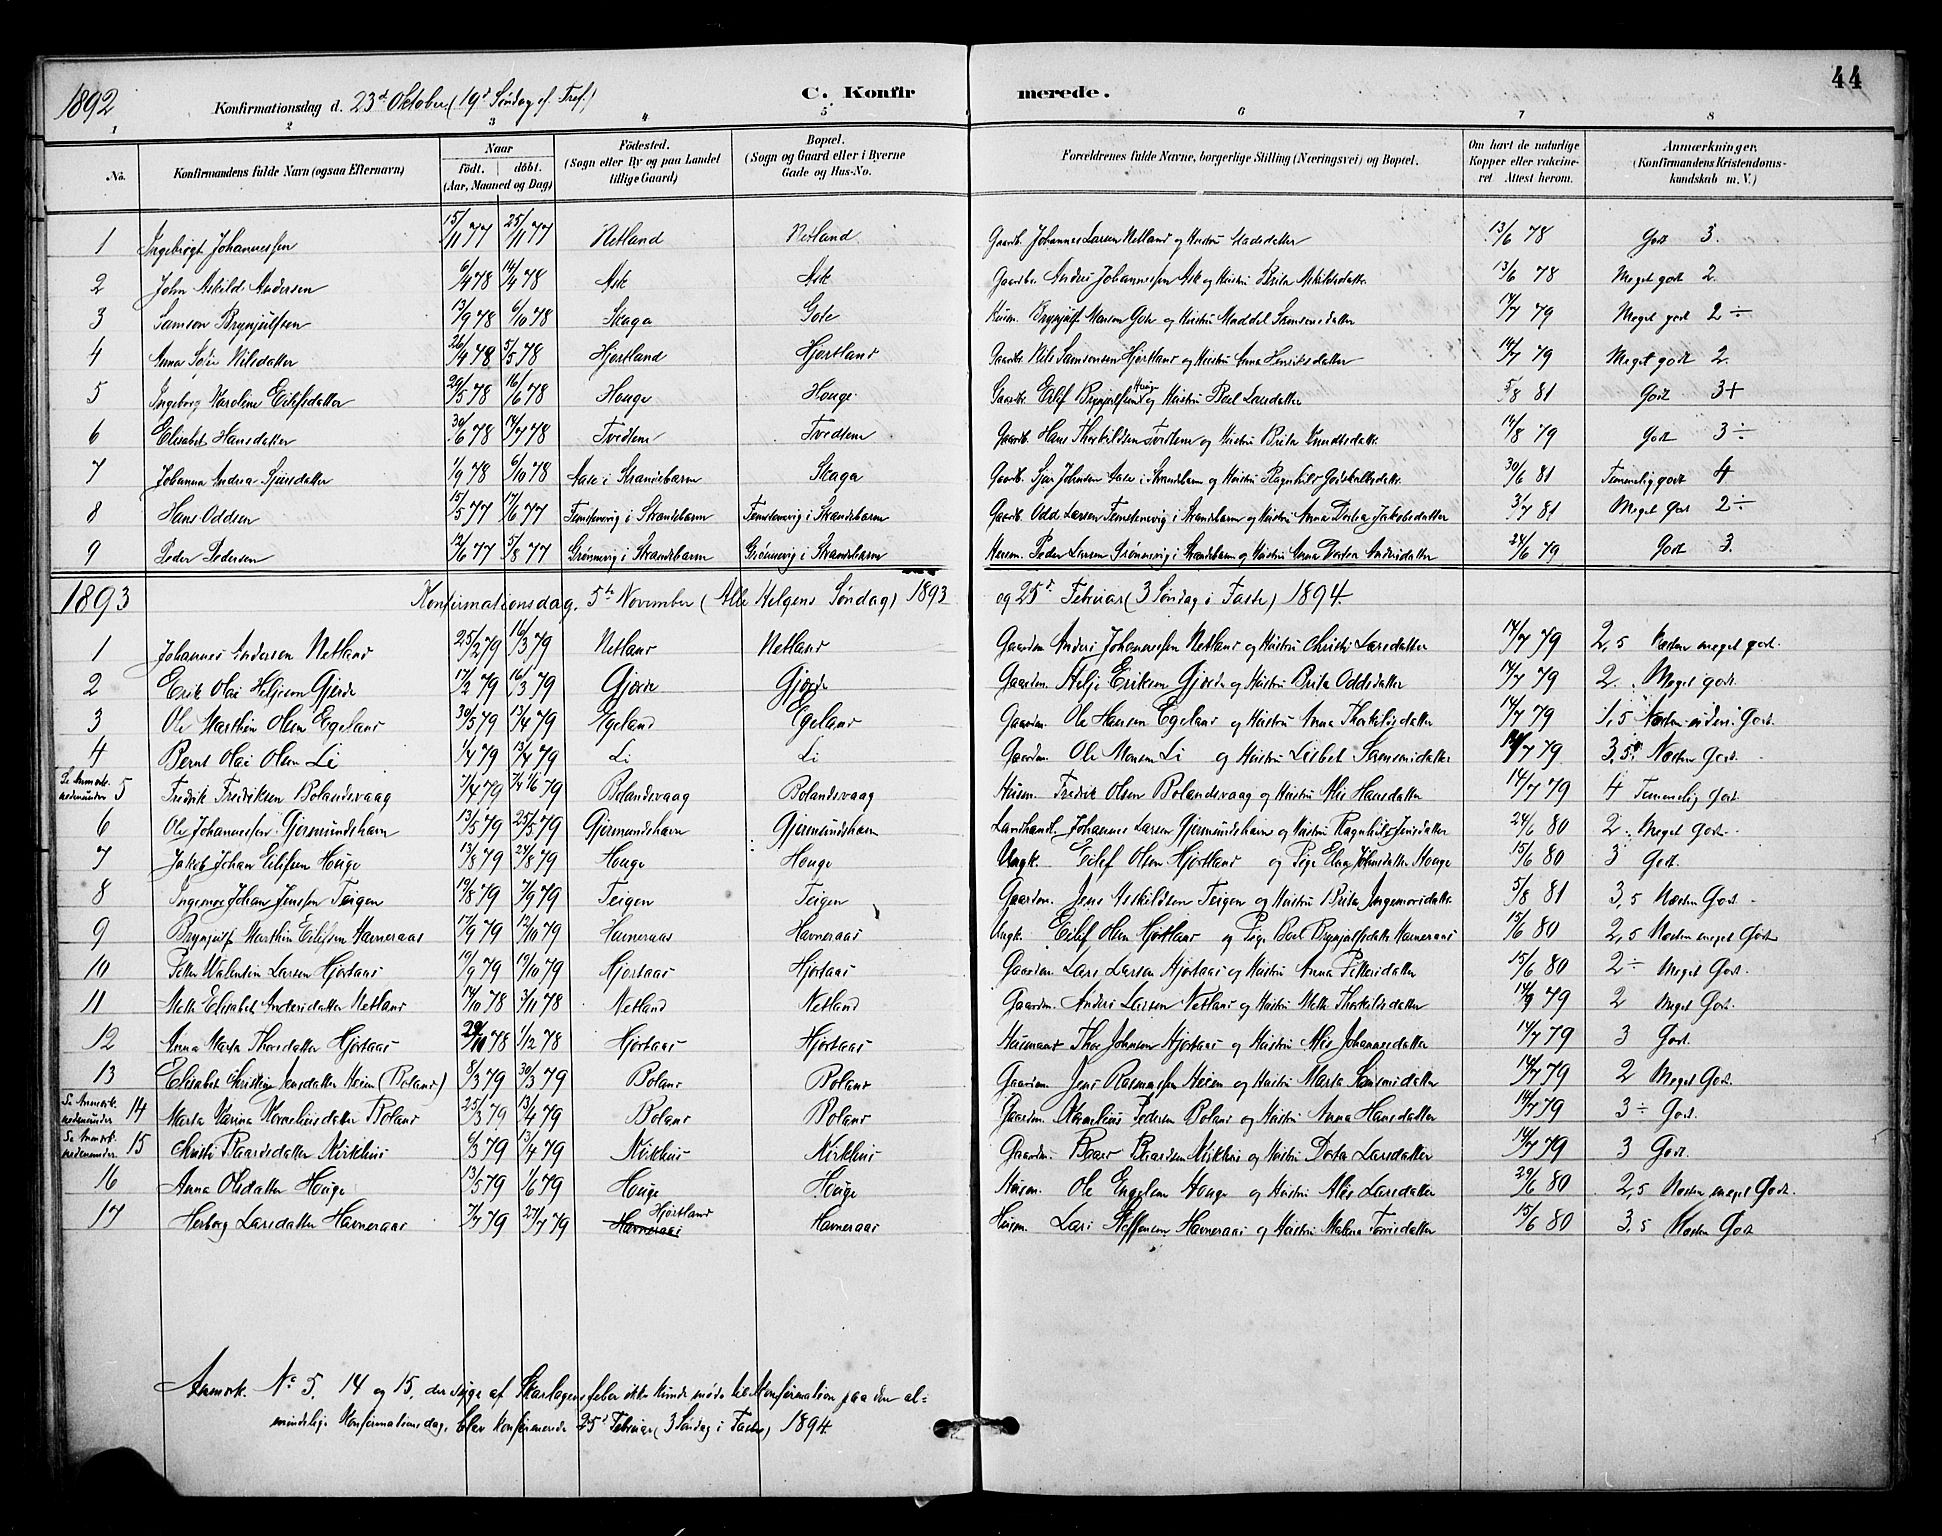 44
1892 Konfirmationsdag d. 23de Oktober (19de Søndag ef. Tref.) C. Konfirmerede.
1 2 3 4 5 6 7 8
No. Konfirmandens fulde Navn (ogsaa Efternavn) Naar født. døbt. (Aar, Maaned og Dag) Fødested. (Sogn eller By og paa Landet tillige Gaard) Bopæl. (Sogn og Gaard eller i Byerne Gade og Hus-No. Forældrenes fulde Navne, borgerlige Stilling (Næringsvei) og Bopæl. Om havt de naturlige Kopper eller vakcineret Attest herom. Anmærkninger. (Konfirmandens Kristendomskundskab m. V.)
1 Ingebrigt Johannessen 15/11 77 25/11 77 Netland Netland Gaardb. Johannes Larsen Netland og Hustru 13/6 78 Godt 3.
2 John Askild Andersen 6/4 78 14/4 78 Ask Ask Gaardbr. Anders Johannessen Ask og Hustru Brita Askildsdatter 13/6 78 Meget godt 2.
3 Samson Brynjulfsen 13/9 78 6/10 78 Skaga Gote Husm. Brynjulf Monsen Gote og Hustru Maddel Samsonsdatter 17/7 79 Meget godt 2 ÷
4 Anna Sofie Nilsdatter 26/4 78 5/5 78 Hjortland Hjortland Gaardbr. Nils Samsonsen Hjortland og Hustru Anna Henriksdatter 14/7 79 Meget godt 2.
5 Ingeborg Karoline Eilefsdatter 29/5 78 16/6 78 Houge Houge Gaardbr. Eilef Brynjulfsen Houge og Hustru Barl Larsdatter 5/8 81 Godt 3+
6 Elisabet Hansdatter 30/6 78 14/7 78 Tvedtene Tvedtene Gaardb. Hans Thorkildsen Tvedtene og Hustru Brita Knudsdatter 14/8 79 Godt 3 ÷
7 Johanna Andrea Sjursdatter 1/9 78 6/10 78 Aase i Strandebarm Skaga Gaardb. Sjur Johnsen Aase i Strandebarm og Hustru Ragnhild Godskalksdatter 30/6 81 Temmelig godt 4
8 Hans Oddsen 15/5 77 17/6 77 Femstenevig i Strandebarm Femstenevig i Strandebarm Gaardb. Odd Larsen Femstenevig i Strandebarm og Hustru Anna Dortea Jakobsdatter 3/7 81 Meget Godt 2 ÷
9 Peder Pedersen 12/6 77 5/8 77 Grønnevig i Strandebarm Grønnevig i Strandebarm Husm. Peder Larsen Grønnevig i Strandebarm og Hustru Anna Dortea Andersdatter 24/6 79 Godt 3.
1893 Konfirmationsdag. 5te November (Alle Helgens Søndag) 1893 og 25de Februar (3 Søndag i Faste) 1894.
1 Johannes Andersen Netland 25/2 79 16/3 79 Netland Netland Gaardm. Anders Johannessen Netland og Hustru Christi Larsdatter 14/7 79 2,5 Næsten meget godt.
2 Erik Olai Heljesen Gjerde 17/2 79 16/3 79 Gjerde Gjerde Gaardm. Helje Eriksen Gjerde og Hustru Brita Oddsdatter 14/7 79 2. Meget godt.
3 Ole Marthin Olsen Egeland 30/5 79 13/4 79 Egeland Egeland Gaardm. Ole Hansen Egeland og Hustru Anna Thorkildsdatter 14/7 79 1,5 Næsten Godt.
4 Bernt Olai Olsen Li 1/4 79 13/4 79 Li Li Gaardm. Ole Monsen Li og Hustru Lisbet Samsonsdatter 14/7 79 3,5 Næsten Godt.
Se Anmerk. nedenunder 5 Fredrik Fredriksen Bolandsvaag 7/4 79 1/6 79 Bolandsvaag Bolandsvaag Husm. Fredrik Olsen Bolandsvaag og Hustru Alis Hansdatter 14/7 79 4 Temmelig Godt.
6 Ole Johannessen Gjermundshavn 13/5 79 25/5 79 Gjermundshavn Gjermundshavn Landhandl. Johannes Larsen Gjermundshavn og Hustru Ragnhild Jensdatter 24/6 80 2. Meget Godt.
7 Jakob Johan Eilefsen Houge 13/8 79 24/8 79 Houge Houge Ungk. Eilef Olsen Hjortland og Pige Elna Johnsdatter Houge 15/6 80 3 Godt.
8 Ingemor Johan Jenssen Teigen 19/8 79 7/9 79 Teigen Teigen Gaardm. Jens Askildsen Teigen og Hustru Brita Ingemorsdatter 5/8 81 3,5 Næsten Godt.
9 Brynjulf Marthin Eilefsen Havneraas 17/9 79 12/10 79 Havneraas Havneraas Ungk. Eilef Olsen Hjortland og Pige Barl Brynjulfsdatter Havneraas 15/6 80 2,5 Næsten meget Godt
10 Petter Walentin Larsen Hjortaas 19/9 79 19/10 79 Hjortaas Hjortaas Gaardm. Lars Larsen Hjortaas og Hustru Anna Pettersdatter 15/6 80 2 ÷ Meget Godt.
11 Mette Elisabet Andersdatter Netland 14/10 78 3/11 78 Netland Netland Gaardm. Anders Larsen Netland og Hustru Mette Thorkildsdatter 14/9 79 2 Meget Godt.
12 Anna Marta Thorsdatter Hjortaas 29/10 78 1/12 78 Hjortaas Hjortaas Husmand Thor Johnsen Hjortaas og Hustru Alis Johannesdatter 14/7 79 3 Godt.
13 Elisabet Christine Jensdatter Heien (Boland) 8/3 79 30/3 79 Boland Boland Gaardm. Jens Rasmussen Heien og Hustru Marta Samsonsdatter 14/7 79 2 Meget Godt.
Se Anmerk. nedenunder 14 Marta Karina Kornelius­datter Boland 25/3 79 13/4 79 Boland Boland Gaardm. Kornelius Pedersen Boland og Hustru Anna Hansdatter 14/7 79 3 ÷ Godt.
Se Anmerk. nedenunder 15 Christi Baardsdatter Kirkhus 6/3 79 13/4 79 Kirkhus Kirkhus Gaardm. Baard Baardsen Kirkhus og Hustru Dortea Larsdatter 14/7 79 3 Godt.
16 Anna Olsdatter Houge 13/5 79 1/6 79 Houge Houge Husm. Ole Engelsen Houge og Hustru Alis Larsdatter 29/6 80 2,5 Næsten meget Godt.
17 Herborg Larsdatter Havneraas 7/7 79 27/7 79 Hjortland Havneraas Havneraas Husm. Lars Steffensen Havneraas og Hustru Malena Torrisdatter 15/6 80 3,5 Næsten Godt
Anmerk. No 5, 14 og 15, der syge af Skarlagensfeber ikke kunde møde til Konfirmation paa den al-
mindelige Konfirmationsdag, blev konfirmerede 25de Februar (3 Søndag i Faste) 1894.